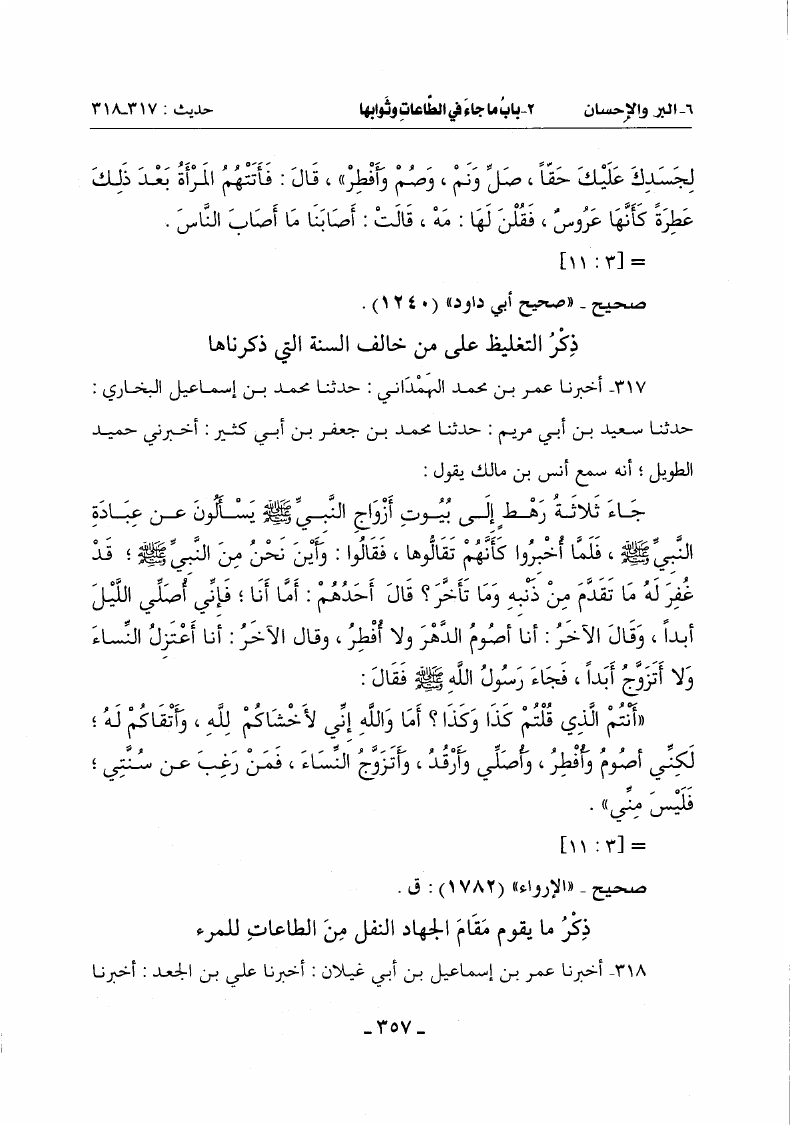 ٦-البر والإحسان ٢-بابُ ما جاءَ في الطّاعاتِ وثَوابها حديث : ٣١٧-٣١٨
لِجَسَدِكَ عَلَيْكَ حَقّاً ، صَلِّ وَنَمْ ، وَصُمْ وَأَفْطِرْ» ، قَالَ : فَأَتَتْهُمُ المَرْأَةُ بَعْدَ ذَلِكَ
عَطِرَةً كَأَنَّهَا عَرُوسٌ ، فَقُلْنَ لَهَا : مَهْ ، قَالَتْ : أَصَابَنَا مَا أَصَابَ النَّاسَ .
= [٣ : ١١]
صحيح - «صحيح أبي داود» (١٢٤٠) .
ذِكْرُ التغليظ على من خالف السنة التي ذكرناها
٣١٧- أخبرنا عمر بن محمد الهَمْدَاني : حدثنا محمد بن إسماعيل البخاري :
حدثنا سعيد بن أبي مريم : حدثنا محمد بن جعفر بن أبي كثير : أخبرني حميد
الطويل ؛ أنه سمع أنس بن مالك يقول :
جَاءَ ثَلاثَةُ رَهْطٍ إلَى بُيُوتِ أَزْوَاجِ النَّبِيِّ ﷺ يَسْأَلُونَ عَنْ عِبَادَةِ
النَّبِيِّ ﷺ ، فَلَمَّا أُخْبِرُوا كَأَنَّهُمْ تَقَالُّوها ، فَقَالُوا : وَأَيْنَ نَحْنُ مِنَ النَّبِيِّ ﷺ ؛ قَدْ
غُفِرَ لَهُ مَا تَقَدَّمَ مِنْ ذَنْبِهِ وَمَا تَأَخَّرَ ؟ قَالَ أَحَدُهُمْ : أَمَّا أَنَا ؛ فَإِنِّي أُصَلِّي اللَّيْلَ
أبداً ، وَقَالَ الآخَرُ : أنا أصُومُ الدَّهْرَ ولا أُفْطِرُ ، وقال الآخَرُ : أنا أَعْتَزِلُ النِّساءَ
وَلا أَتَزَوَّجُ أَبَداً ، فَجَاءَ رَسُولُ اللَّهِ ﷺ فَقَالَ :
«أَنْتُمُ الَّذِي قُلْتُمْ كَذَا وَكَذَا ؟ أَمَا وَاللَّهِ إنِّي لأَخْشَاكُمْ لِلَّهِ ، وَأَتْقَاكُمْ لَهُ ؛
لَكِنِّي أصُومُ وَأُفْطِرُ ، وَأُصَلِّي وَأَرْقُدُ ، وَأَتَزَوَّجُ النِّسَاءَ ، فَمَنْ رَغِبَ عن سُنَّتِي ؛
فَلَيْسَ مِنِّي» .
= [٣ : ١١]
صحيح - «الإرواء» (١٧٨٢) : ق .
ذِكْرُ ما يقوم مَقَامَ الجهاد النفل مِنَ الطاعاتِ للمرء
٣١٨- أخبرنا عمر بن إسماعيل بن أبي غيلان : أخبرنا علي بن الجعد : أخبرنا
- ٣٥٧ -